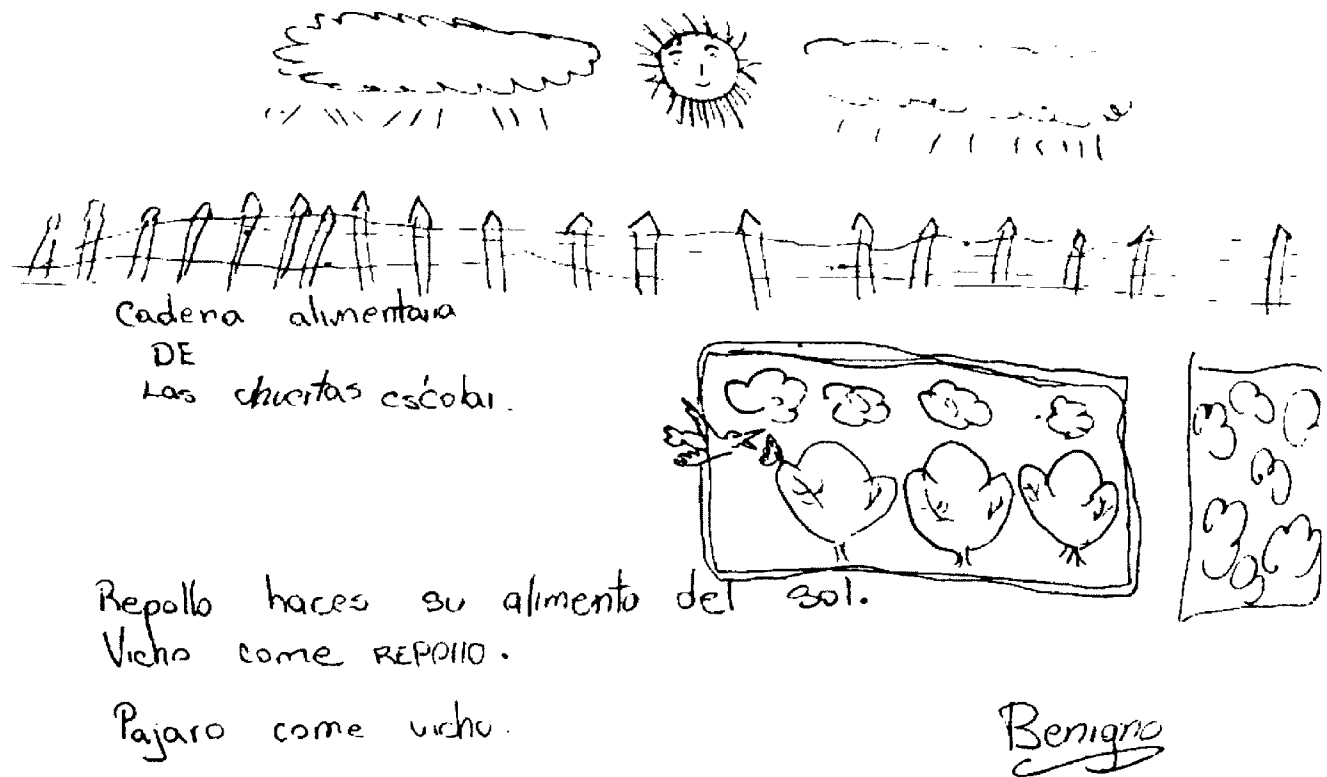 Cadena alimentaria
DE
Las chuertas escolar.
Repollo haces su alimento del sol.
Vicho come REPOllO.
Pajaro come vichu.
Benigno